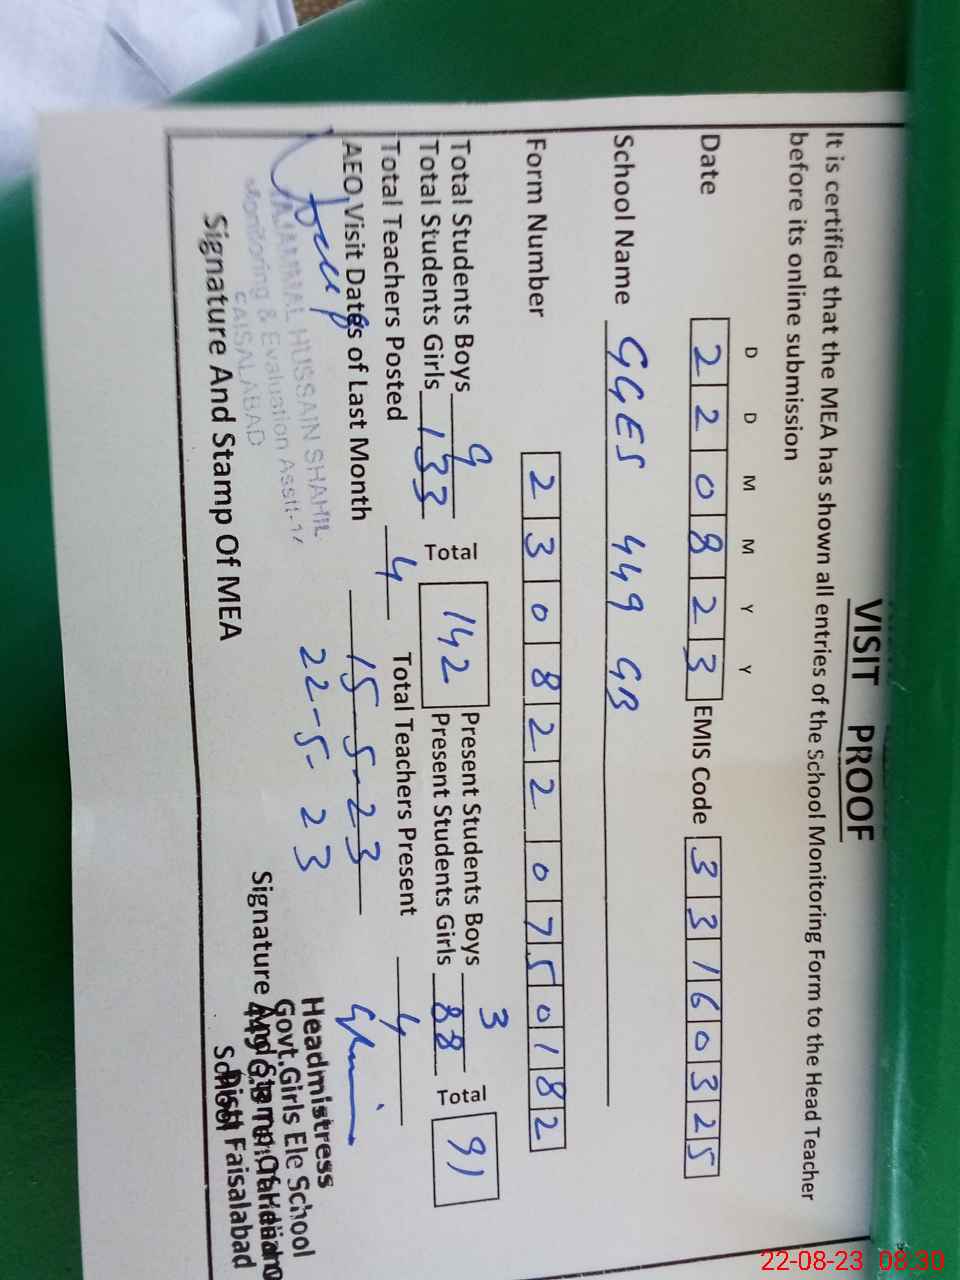 VISIT PROOF
It is certified that the MEA has shown all entries of the School Monitoring Form to the Head Teacher
before its online submission
D D M M Y Y
Date 2 2 0 8 2 3 EMIS Code 3 3 1 6 0 3 2 5
School Name GGES 449 GB
Form Number 2 3 0 8 2 2 0 7 5 0 1 8 2
Total Students Boys 9 Total 142 Present Students Boys 3 Total 91
Total Students Girls 133 Present Students Girls 88
Total Teachers Posted 4 Total Teachers Present 4
AEO Visit Dates of Last Month 15-5-23
22-5-23
HUSSAIN SHAHIL
Monitoring & Evaluation Asstt-
FAISALABAD
Signature And Stamp Of MEA
Headmistress
Govt.Girls Ele School
449 G.B
Distt Faisalabad
Signature And Stamp Of
School
22-08-23 08:30